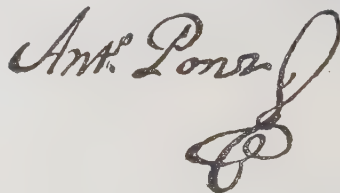 Antº Ponz